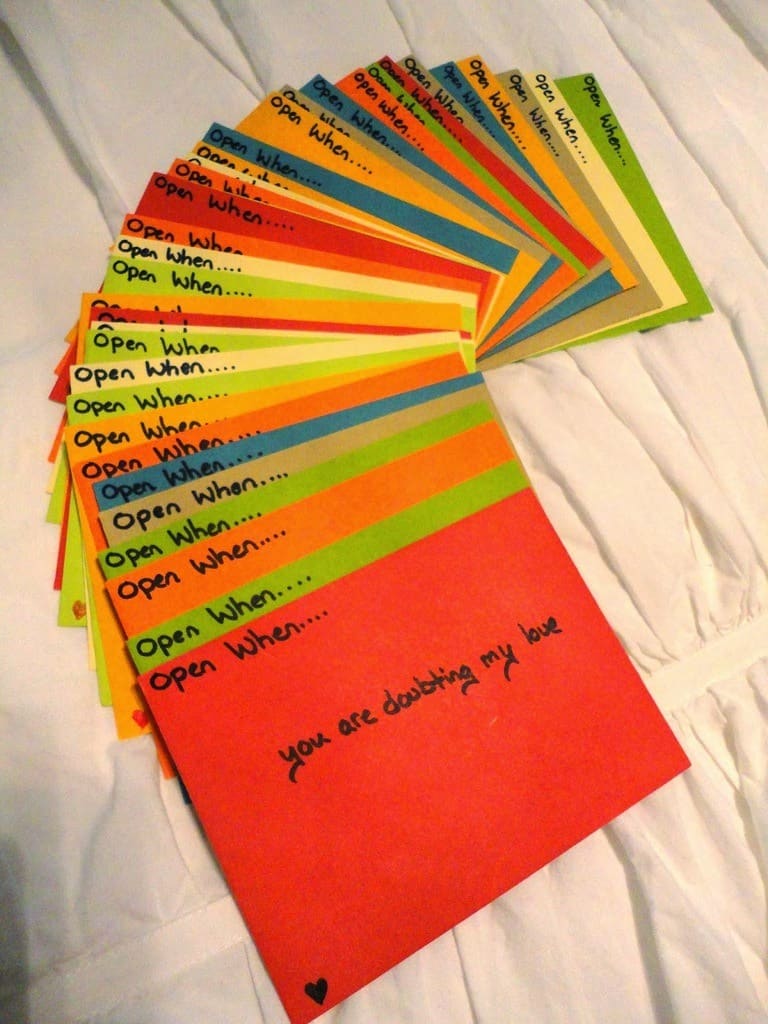 Open When....
Open When....
Open When....
Open When....
Open When....
Open When....
Open When....
Open When....
Open When....
Open When....
Open When
Open When....
Open When....
Open When
Open When
Open When....
Open When
Open When....
Open When....
Open When
Open When....
Open When....
Open When....
Open When....
Open When....
Open When....
Open When....
Open When....
Open When....
Open When....
you are doubting my love